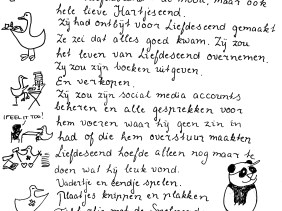 hele lieve Hartjeseend.
Zij had ontbijt voor Liefdeseend gemaakt
Ze zei dat alles goed kwam. Zij zou
het leven van Liefdeseend overnemen.
Zij zou zijn boeken uitgeven.
En verkopen.
Zij zou zijn social media accounts
beheren en alle gesprekken voor
hem voeren waar hij geen zin in
I FEEL IT TOO!
had of die hem overstuur maakten
Liefdeseend hoefde alleen nog maar te
doen wat hij leuk vond.
Vadertje en eendje spelen.
Plaatjes knippen en plakken